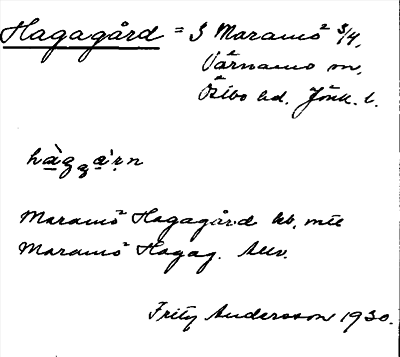 Hagagård = 3 Maramö² 3/4,
Värnamo sn,
Östbo hd. Jönk. l.
hàgga'rn
Maramö² Hagagård kb, mtl
Maramö² Hagag.
Fritz Andersson 1930.